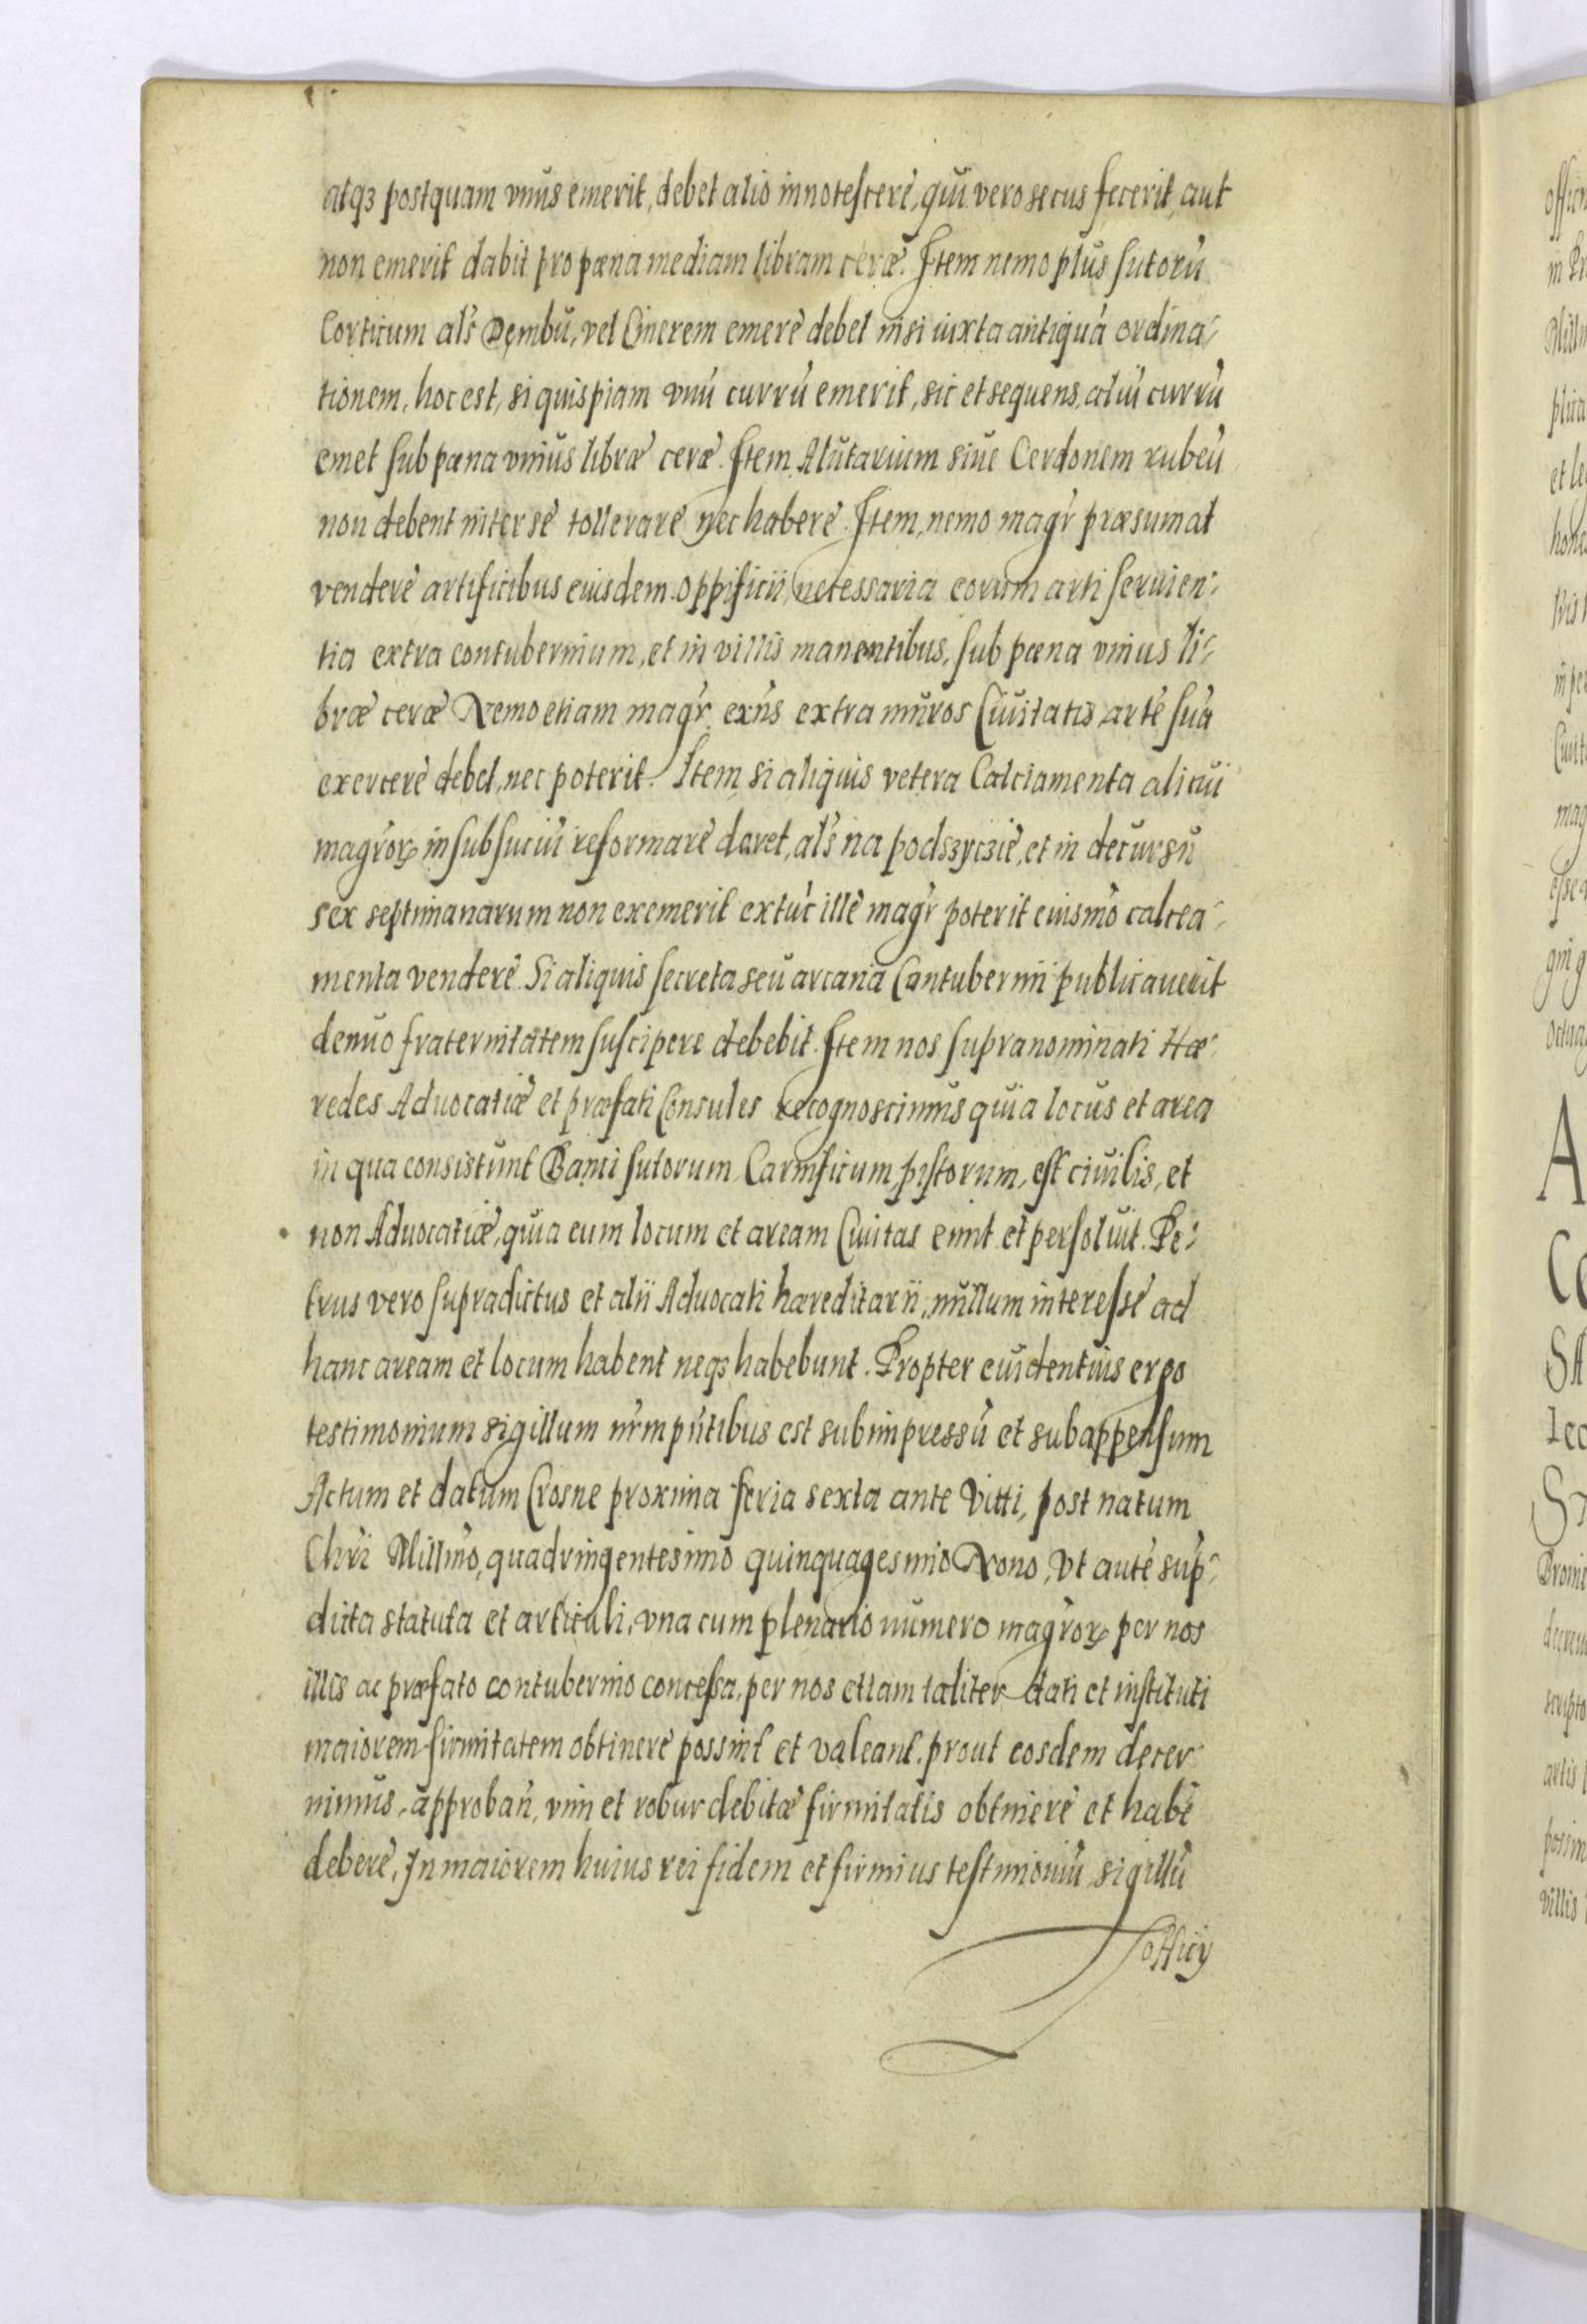 atqꝫ postquam vnus emerit, debet alio innotescere, qui vero secus fecerit, aut
non emerit dabit pro pœna mediam libram ceræ. Item nemo plus sutorū
Corticum als Dęmbū, vel Cinerem emere debet nisi iuxta antiquā ordina-
tionem, hoc est, si quispiam vnū currū emerit, sic et sequens, aliū currū
emet sub pœna vnius libræ ceræ. Item Alutarium siue Cerdonem rubeū
non debent inter se tollerare nec habere. Item, nemo magr̄ præsumat
vendere artificibus eiusdem oppificii, necessaria eorum arti seruien-
tia extra contubernium, et in villis manentibus, sub pœna vnius li-
bræ ceræ Nemo etiam magr̄ exn̄s extra muros Ciuitatis, artē suā
exercere debet, nec poterit. Item si aliquis vetera Calciamenta alicui
magrorꝝ in subsuciū reformare daret, als na podszyczie, et in decursū
sex septimanarum non exemerit extūc ille magr̄ poterit eiusmō calcea-
menta vendere. Si aliquis secreta seu arcana Cantubernii publicauerit
denuo fraternitatem suscipere debebit. Item nos supranominati Hæ-
redes Aduocatiæ et præfati Consules recognoscimus quia locus et area
in qua consistunt Banci sutorum, Carnificum, pistorum, est ciuilis, et
non Aduocatiæ, quia eum locum et aream Ciuitas emit et persoluit. Pe-
trus vero supradictus et alii Aduocati hæreditarii, nullum interesse ad
hanc aream et locum habent neqꝫ habebunt. Propter euidentius ergo
testimonium sigillum nr̄m pn̄tibus est subimpressū et subappensum
Actum et datum Crosne proxima feria sexta ante Vitti, post natum
Chri Millmō, quadringentesimo quinquagesimo Nono, Vt autē sup-
dicta statuta et articuli, vna cum plenario numero magrorꝝ per nos
illis ac præfato contubernio concessa, per nos etiam taliter dati et instituti
maiorem firmitatem obtinere possint et valeant, prout eosdem decer-
nimus, approban̄, vim et robur debitæ firmitatis obtinere et habē
debere, In maiorem huius rei fidem et firmius testimoniū, sigillū
officij